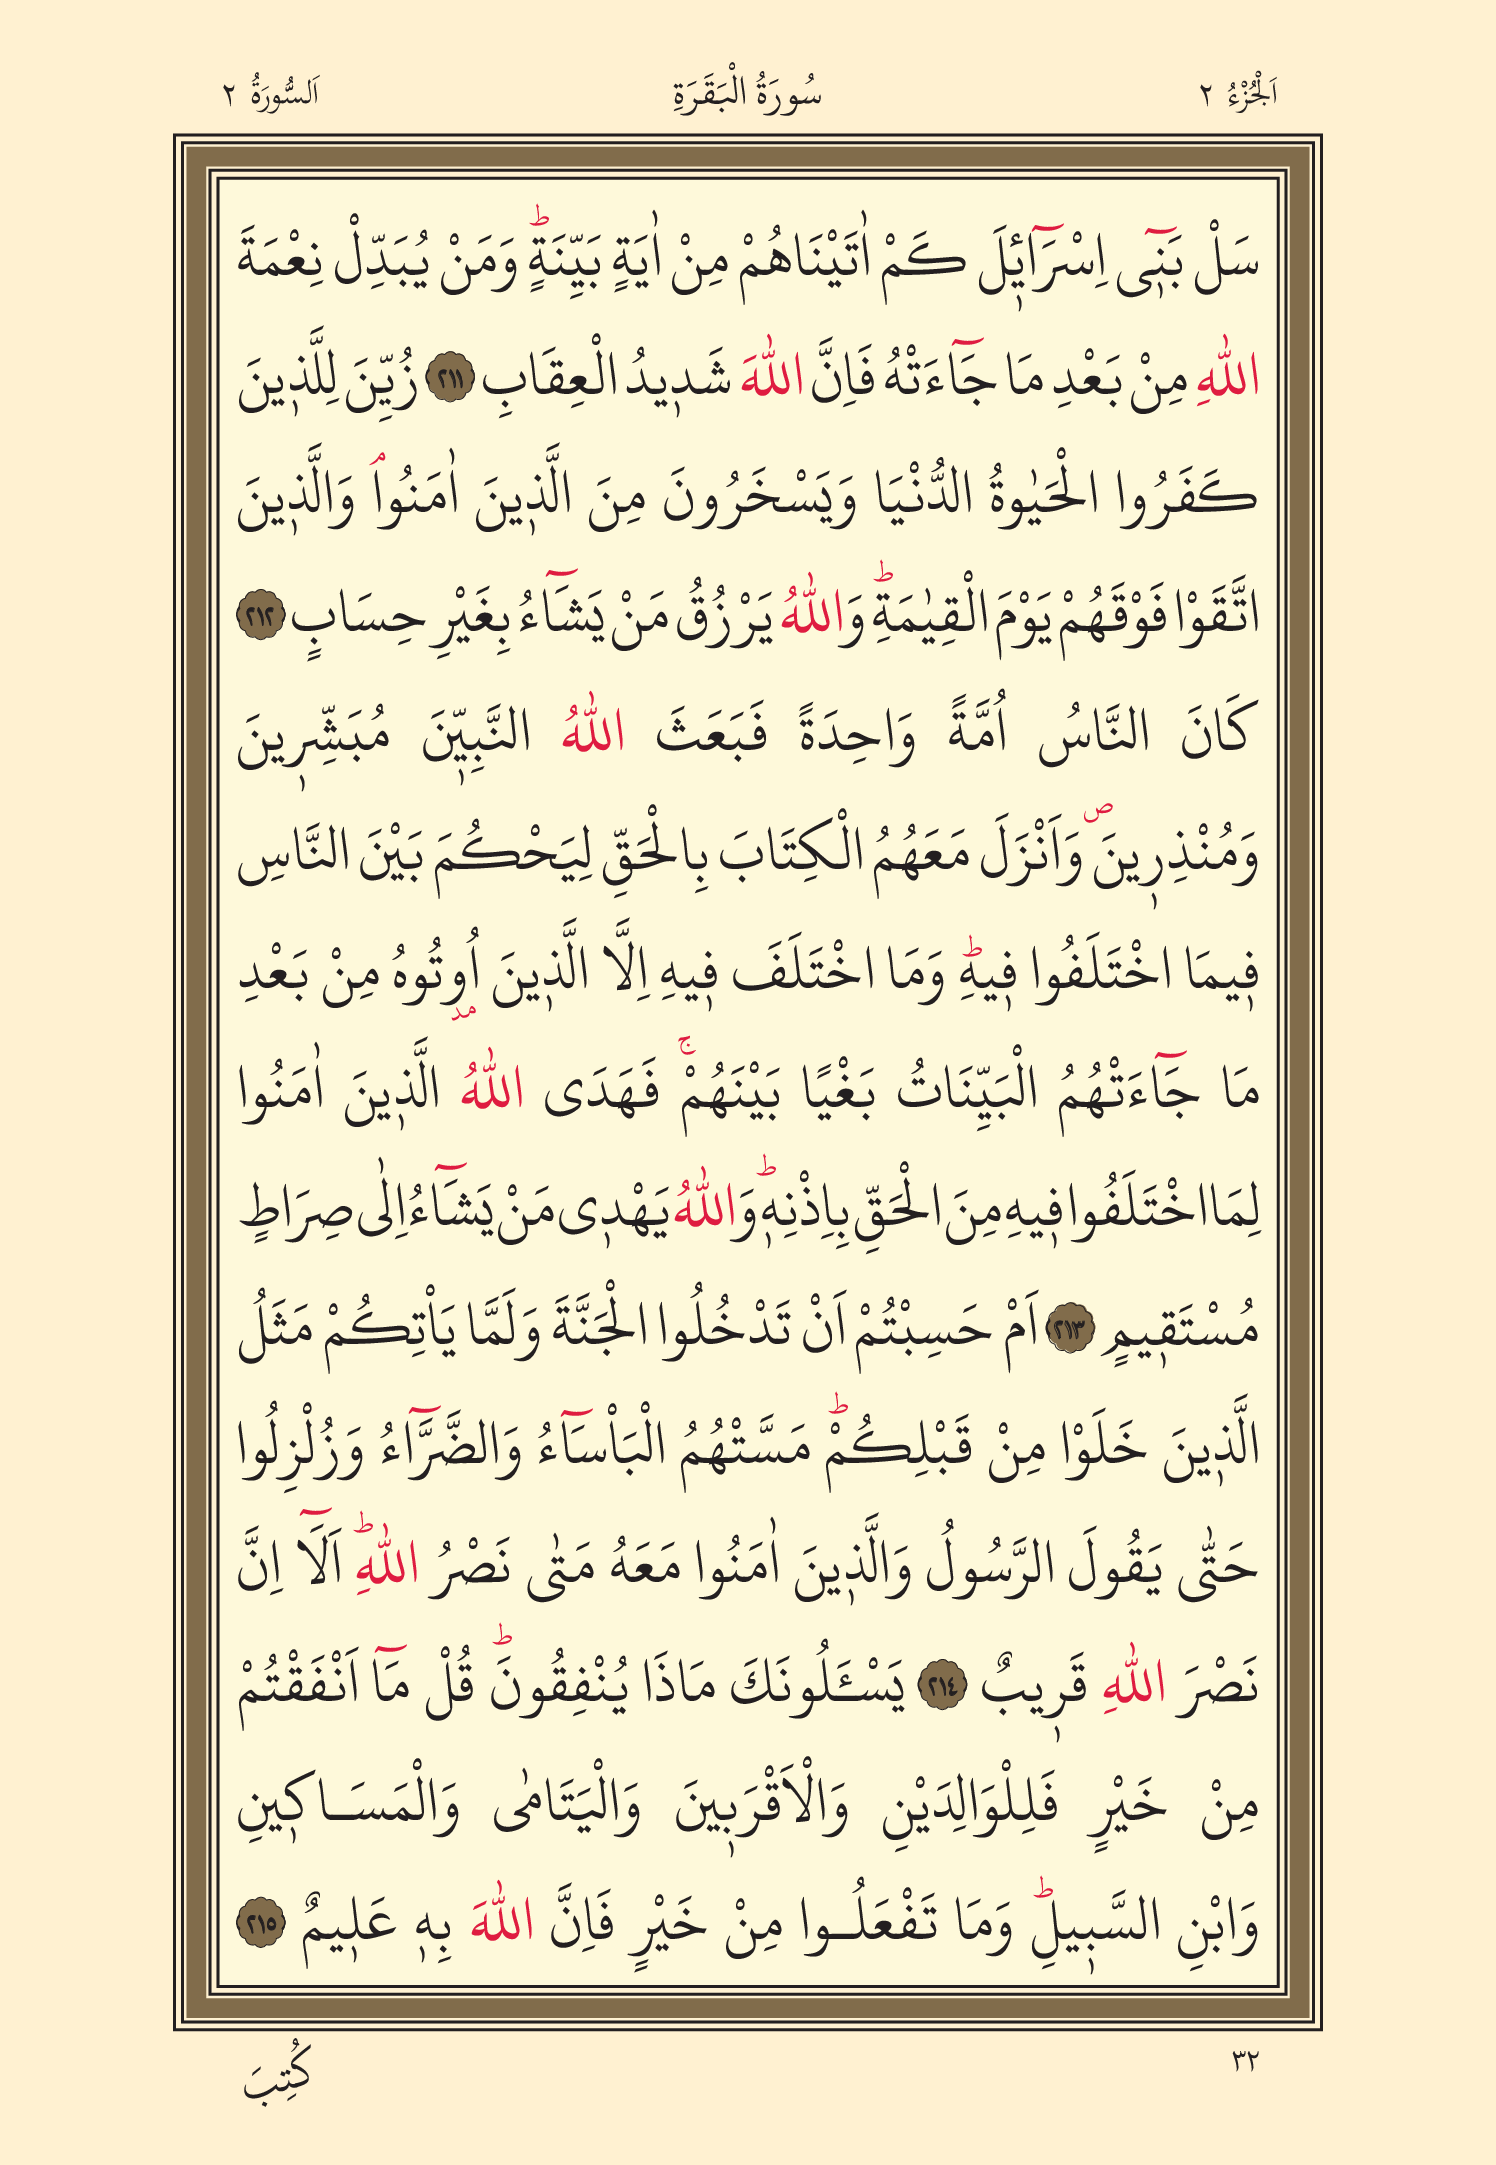 اَلْجُزْءُ ٢
سُورَةُ الْبَقَرَةِ
اَلسُّورَةُ ٢
سَلْ بَن۪ٓي اِسْرَٓائ۪لَ كَمْ اٰتَيْنَاهُمْ مِنْ اٰيَةٍ بَيِّنَةٍۜ وَمَنْ يُبَدِّلْ نِعْمَةَ
اللّٰهِ مِنْ بَعْدِ مَا جَٓاءَتْهُ فَاِنَّ اللّٰهَ شَد۪يدُ الْعِقَابِ ﴿٢١١﴾ زُيِّنَ لِلَّذ۪ينَ
كَفَرُوا الْحَيٰوةُ الدُّنْيَا وَيَسْخَرُونَ مِنَ الَّذ۪ينَ اٰمَنُواۢ وَالَّذ۪ينَ
اتَّقَوْا فَوْقَهُمْ يَوْمَ الْقِيٰمَةِۜ وَاللّٰهُ يَرْزُقُ مَنْ يَشَٓاءُ بِغَيْرِ حِسَابٍ ﴿٢١٢﴾
كَانَ النَّاسُ اُمَّةً وَاحِدَةً فَبَعَثَ اللّٰهُ النَّبِيّ۪نَ مُبَشِّر۪ينَ
وَمُنْذِر۪ينَۖ وَاَنْزَلَ مَعَهُمُ الْكِتَابَ بِالْحَقِّ لِيَحْكُمَ بَيْنَ النَّاسِ
ف۪يمَا اخْتَلَفُوا ف۪يهِۜ وَمَا اخْتَلَفَ ف۪يهِ اِلَّا الَّذ۪ينَ اُو۫تُوهُ مِنْ بَعْدِ
مَا جَٓاءَتْهُمُ الْبَيِّنَاتُ بَغْيًا بَيْنَهُمْۚ فَهَدَى اللّٰهُ الَّذ۪ينَ اٰمَنُوا
لِمَا اخْتَلَفُوا ف۪يهِ مِنَ الْحَقِّ بِاِذْنِه۪ۜ وَاللّٰهُ يَهْد۪ي مَنْ يَشَٓاءُ اِلٰى صِرَاطٍ
مُسْتَق۪يمٍ ﴿٢١٣﴾ اَمْ حَسِبْتُمْ اَنْ تَدْخُلُوا الْجَنَّةَ وَلَمَّا يَاْتِكُمْ مَثَلُ
الَّذ۪ينَ خَلَوْا مِنْ قَبْلِكُمْۜ مَسَّتْهُمُ الْبَاْسَٓاءُ وَالضَّرَّٓاءُ وَزُلْزِلُوا
حَتّٰى يَقُولَ الرَّسُولُ وَالَّذ۪ينَ اٰمَنُوا مَعَهُ مَتٰى نَصْرُ اللّٰهِۜ اَلَٓا اِنَّ
نَصْرَ اللّٰهِ قَر۪يبٌ ﴿٢١٤﴾ يَسْـَٔلُونَكَ مَاذَا يُنْفِقُونَۜ قُلْ مَٓا اَنْفَقْتُمْ
مِنْ خَيْرٍ فَلِلْوَالِدَيْنِ وَالْاَقْرَب۪ينَ وَالْيَتَامٰى وَالْمَسَاك۪ينِ
وَابْنِ السَّب۪يلِۜ وَمَا تَفْعَلُوا مِنْ خَيْرٍ فَاِنَّ اللّٰهَ بِه۪ عَل۪يمٌ ﴿٢١٥﴾
٣٢
كُتِبَ